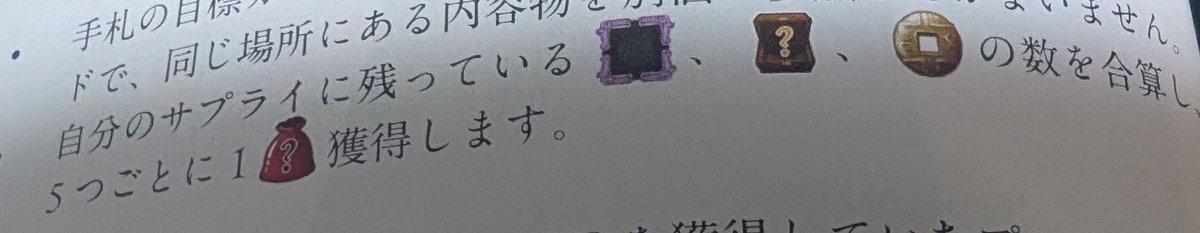 手札の目標カ
ドで、同じ場所にある内容物を別個 まいません。
自分のサプライに残っている ? 、 ? 、 の数を合算し、
5つごとに1 ? 獲得します。
を獲得しているプ